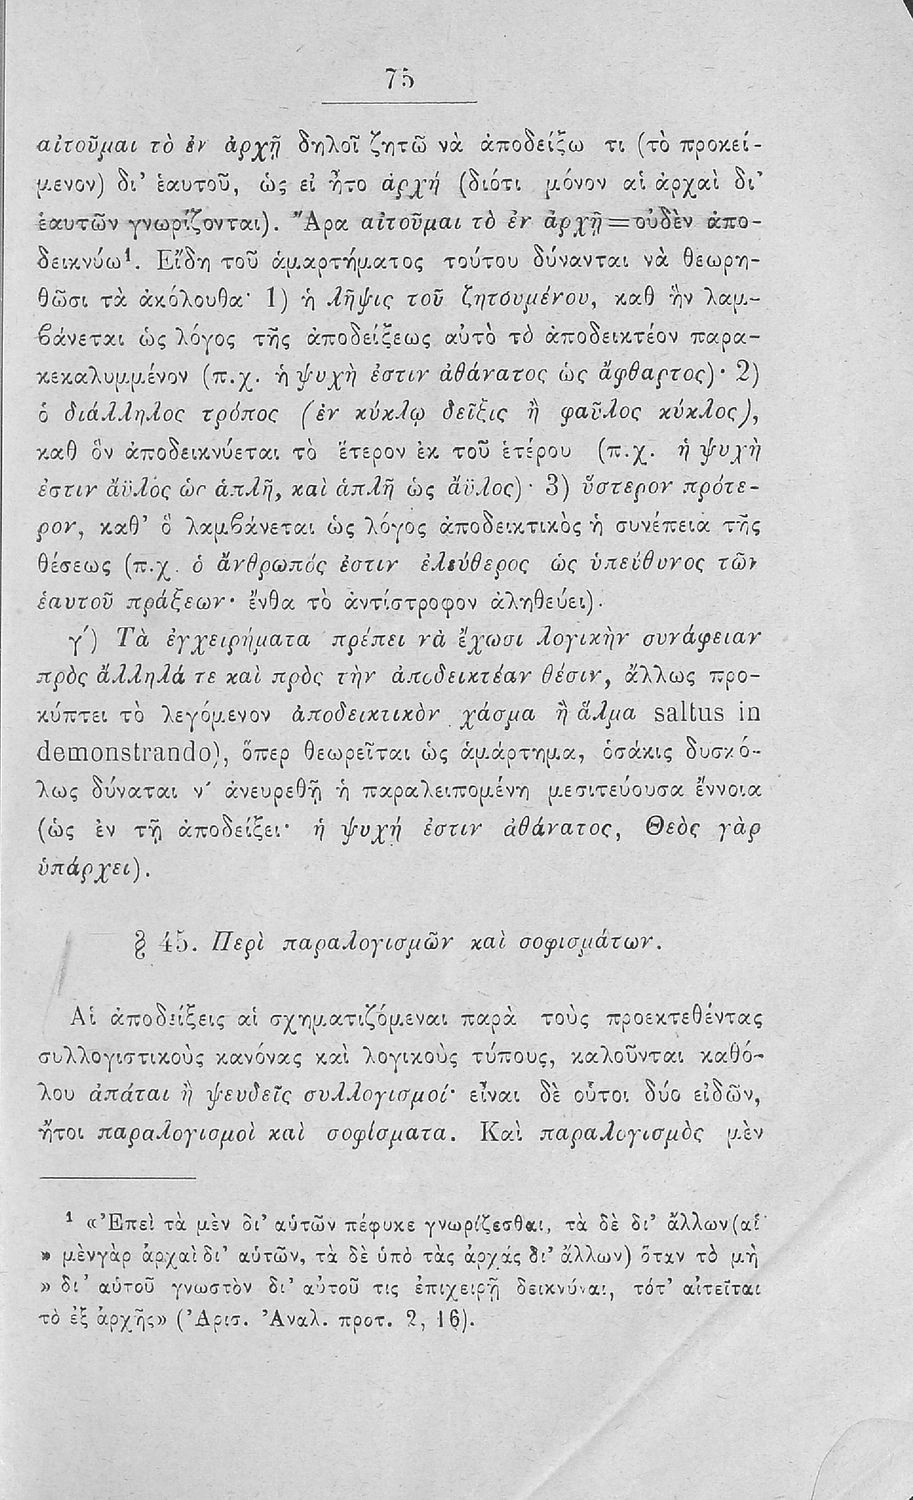 75
αἰτοῦμαι τὸ ἐν ἀρχῇ δηλοῖ ζητῶ νὰ ἀποδείξω τι (τὸ προκεί-
μενον) δι’ ἑαυτοῦ, ὡς εἰ ἦτο ἀρχή (διότι μόνον αἱ ἀρχαὶ δι’
ἑαυτῶν γνωρίζονται). Ἄρα αἰτοῦμαι τὸ ἐν ἀρχῇ=οὐδὲν ἀπο-
δεικνύω¹. Εἴδη τοῦ ἁμαρτήματος τούτου δύνανται νὰ θεωρη-
θῶσι τὰ ἀκόλουθα· 1) ἡ λῆψις τοῦ ζητουμένου, καθ ἣν λαμ-
βάνεται ὡς λόγος τῆς ἀποδείξεως αὐτὸ τὸ ἀποδεικτέον παρα-
κεκαλυμμένον (π.χ. ἡ ψυχὴ ἐστιν ἀθάνατος ὡς ἄφθαρτος)· 2)
ὁ διάλληλος τρόπος (ἐν κύκλῳ δεῖξις ἢ φαῦλος κύκλος),
καθ ὃν ἀποδεικνύεται τὸ ἕτερον ἐκ τοῦ ἑτέρου (π.χ. ἡ ψυχὴ
ἐστιν ἄϋλος ὡς ἁπλῆ, καὶ ἁπλῆ ὡς ἄϋλος)· 3) ὕστερον πρότε-
ρον, καθ’ ὃ λαμβάνεται ὡς λόγος ἀποδεικτικὸς ἡ συνέπεια τῆς
θέσεως (π.χ. ὁ ἄνθρωπός ἐστιν ἐλεύθερος ὡς ὑπεύθυνος τῶν
ἑαυτοῦ πράξεων· ἔνθα τὸ ἀντίστροφον ἀληθεύει).
γ΄) Τὰ ἐγχειρήματα πρέπει νὰ ἔχωσι λογικὴν συνάφειαν
πρὸς ἄλληλά τε καὶ πρὸς τὴν ἀποδεικτέαν θέσιν, ἄλλως προ-
κύπτει τὸ λεγόμενον ἀποδεικτικὸν χάσμα ἢ ἅλμα saltus in
demonstrando), ὅπερ θεωρεῖται ὡς ἁμάρτημα, ὁσάκις δυσκό-
λως δύναται ν’ ἀνευρεθῇ ἡ παραλειπομένη μεσιτεύουσα ἔννοια
(ὡς ἐν τῇ ἀποδείξει· ἡ ψυχή ἐστιν ἀθάνατος, Θεὸς γὰρ
ὑπάρχει).
§ 45. Περὶ παραλογισμῶν καὶ σοφισμάτων.
Αἱ ἀποδείξεις αἱ σχηματιζόμεναι παρὰ τοὺς προεκτεθέντας
συλλογιστικοὺς κανόνας καὶ λογικοὺς τύπους, καλοῦνται καθό-
λου ἀπάται ἢ ψευδεῖς συλλογισμοί· εἶναι δὲ οὗτοι δύο εἰδῶν,
ἤτοι παραλογισμοὶ καὶ σοφίσματα. Καὶ παραλογισμὸς μὲν
¹ «Ἐπεὶ τὰ μὲν δι’ αὑτῶν πέφυκε γνωρίζεσθαι, τὰ δὲ δι’ ἄλλων(αἱ
» μὲνγὰρ ἀρχαὶ δι’ αὑτῶν, τὰ δὲ ὑπὸ τὰς ἀρχὰς δι’ ἄλλων) ὅταν τὸ μὴ
» δι’ αὑτοῦ γνωστὸν δι’ αὑτοῦ τις ἐπιχειρῇ δεικνύναι, τότ’ αἰτεῖται
τὸ ἐξ ἀρχῆς» (Ἀρισ. Ἀναλ. προτ. 2, 16).